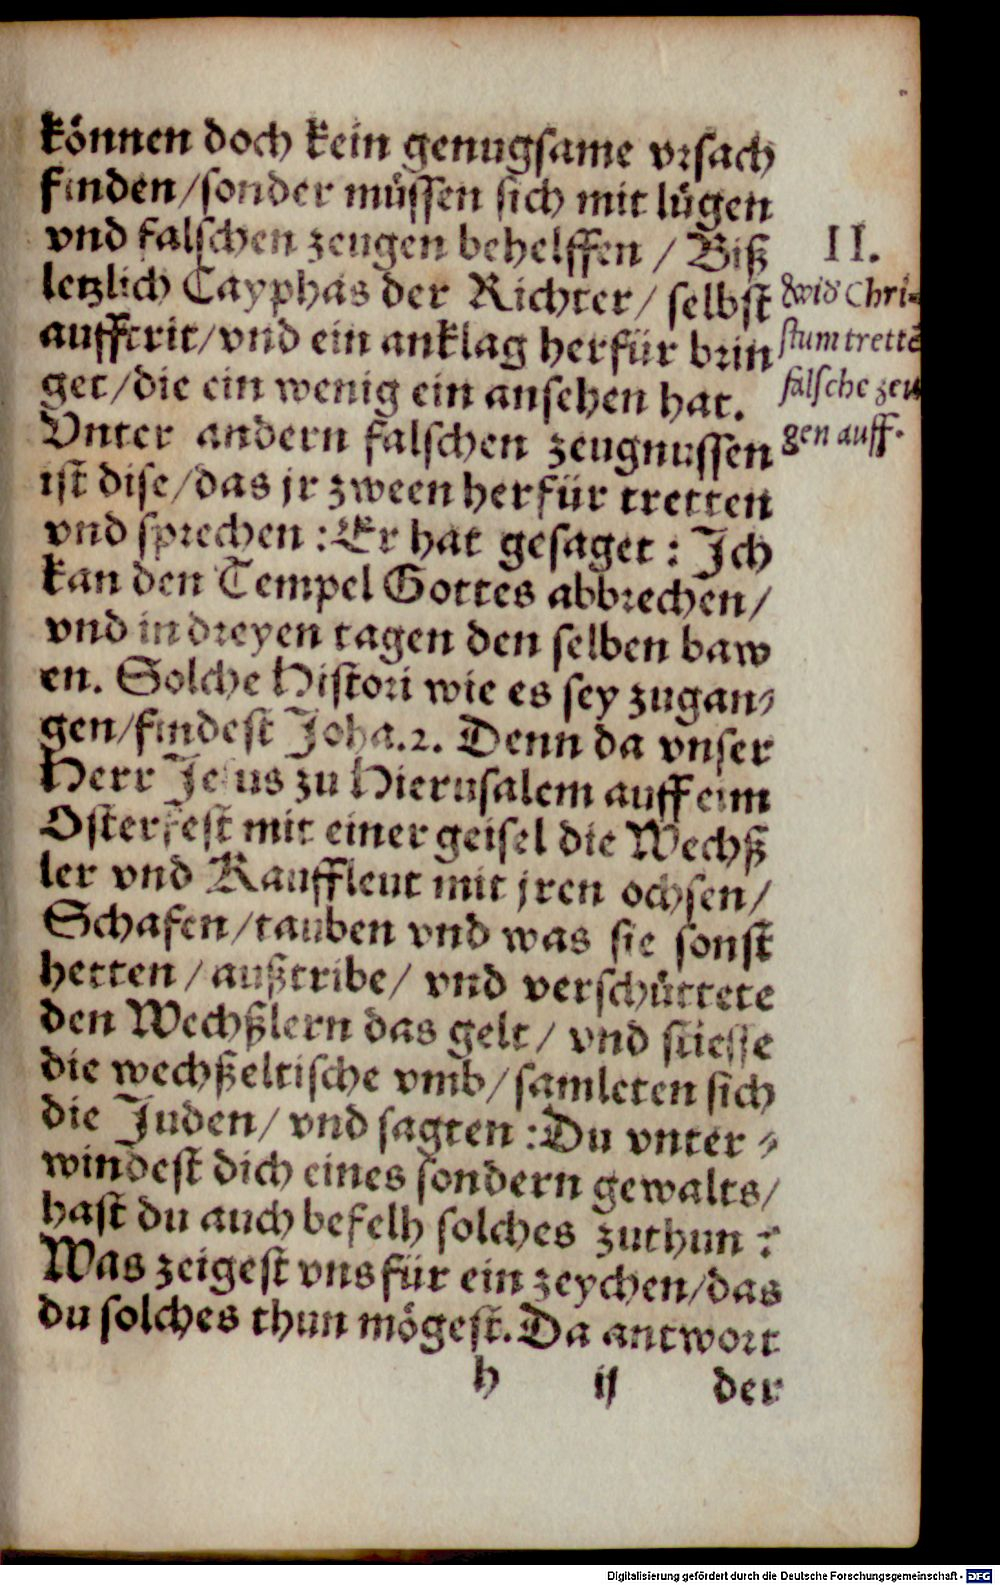 können doch kein genugsame vrsach
finden/sonder müssen sich mit lügen
vnd falschen zeugen behelffen / Biß
letzlich Cayphas der Richter/ selbst
aufftrit/vnd ein anklag herfür brin
get/die ein wenig ein ansehen hat.
Vnter andern falschen zeugnussen
ist dise/das jr zween herfür tretten
vnd sprechen : Er hat gesaget : Ich
kan den Tempel Gottes abbrechen/
vnd in dreyen tagen den selben baw
en. Solche Histori wie es sey zugan-
gen/findest Joha.2. Denn da vnser
Herr Jesus zu Hierusalem auff eim
Osterfest mit einer geisel die Wechß
ler vnd Kauffleut mit jren ochsen/
Schafen/tauben vnd was sie sonst
hetten / außtribe/ vnd verschüttete
den Wechßlern das gelt/ vnd stiesse
die wechßeltische vmb/samleten sich
die Juden/ vnd sagten :Du vnter-
windest dich eines sondern gewalts/
hast du auch befelh solches zuthun ?
Was zeigest vns für ein zeychen/das
du solches thun mögest. Da antwort
h ij der
II.
Chri-
stum trettē
falsche zeu
gen auff.
Digitalisierung gefördert durch die Deutsche Forschungsgemeinschaft - DFG